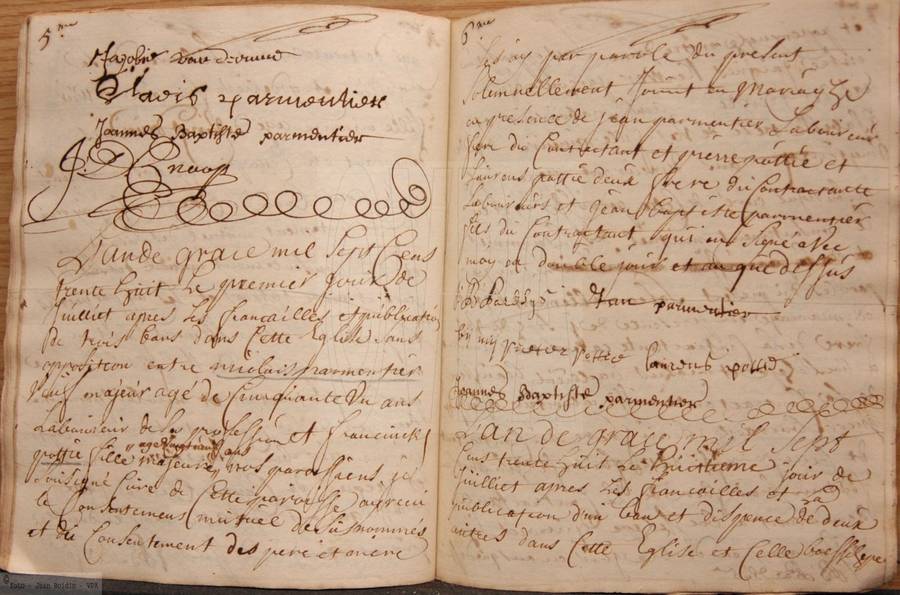 5me
Jacobus
parmentier
Joannes Baptiste parmentier
L'an de grace mil Sept Cens
trente huit Le premier Jour de
Juilliet apres Les fiancailles et publication
de trois bans dans Cette Eglise sans
opposition entre nicolais parmentier
veuf majeur agé de Cinquante un ans
Laboureur de Sa profession et francinck
pottie fille majeure agé ans nos paroissiens je
Sousigné Curé de Cette paroisse ay recu
le Consentement mutuel de Susnommés
et du Consentement des pere et mere
6me
Les ay par parole du present
Solennellement Joint en Mariage
en presence de jean parmentier Laboureur
frere du Contractant et pierre pottie et
Laurens pottie deux frere du Contractante
Laboureurs et Jean baptiste parmentier
fils du Contractant qui on Signé avec
moy en double jour et an que dessus
Jan parmentier
by my pieter pottie laurens pottie
Joannes Baptiste parmentier
L'an de grace mil Sept
Cens trente huit Le huitieme jour de
Juilliet apres Les fiancailles et La
publication d'un ban et dispence de deux
autres dans Cette Eglise et Celle
©Foto - Jean Boidin - VVF